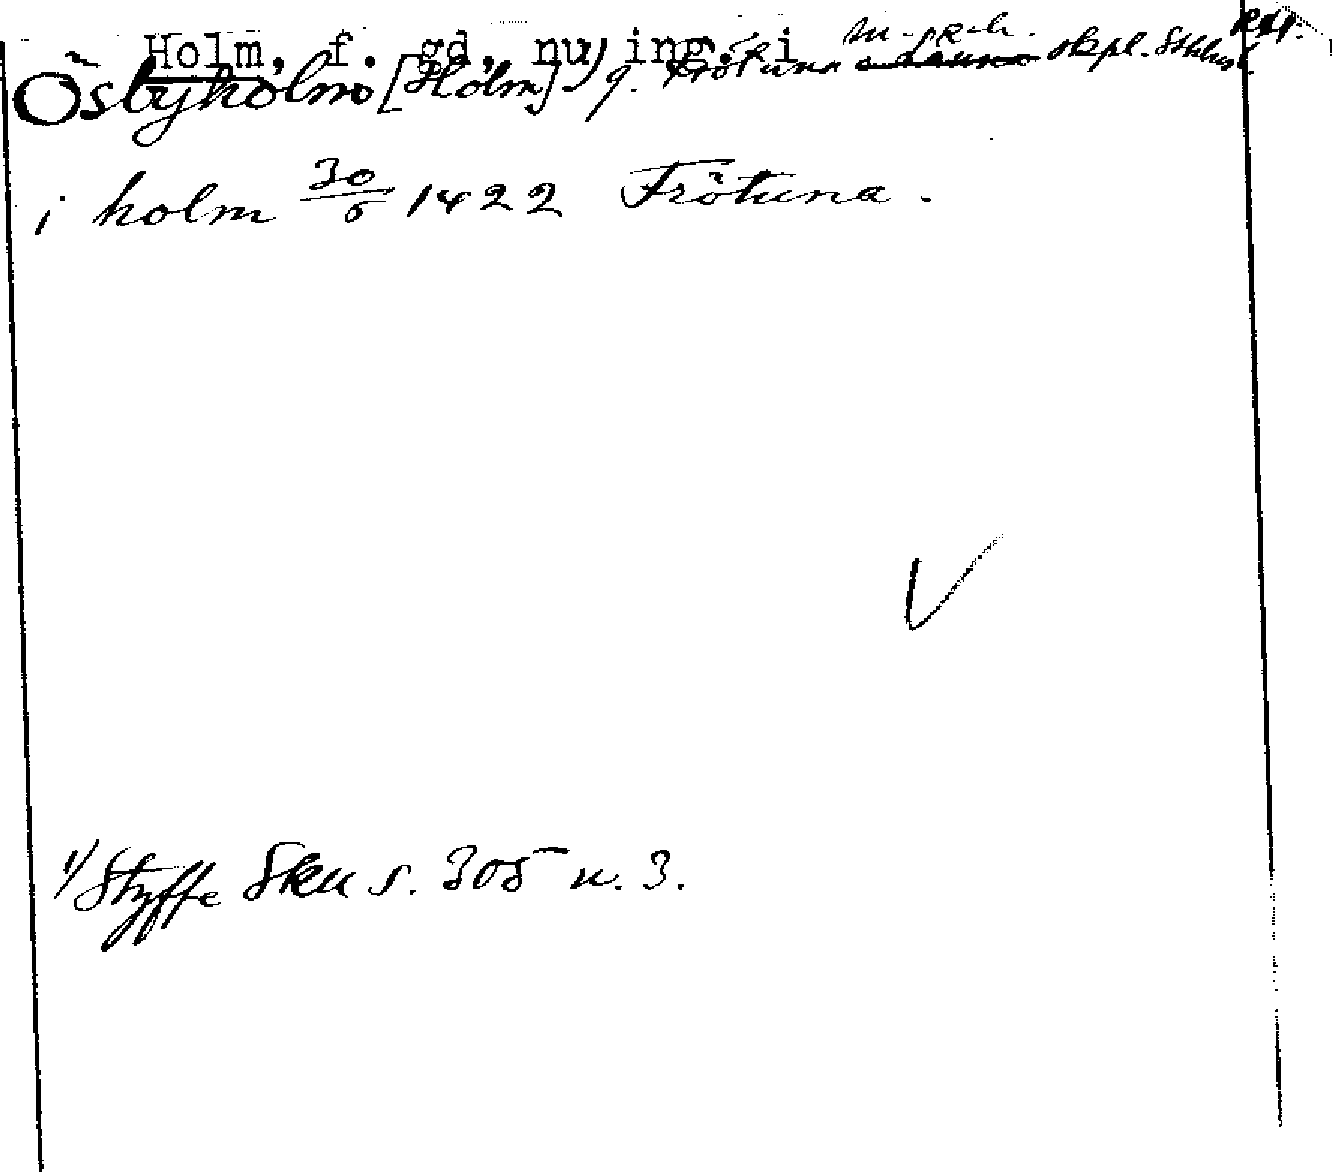 Holm, f. gd, nu ing. i
Ösbyholm [Holm] g. Frötuna skpl. Sthlms l.
i holm 30/6 1422 Frötuna.
V
1) Styffe Sku s. 305 n. 3.